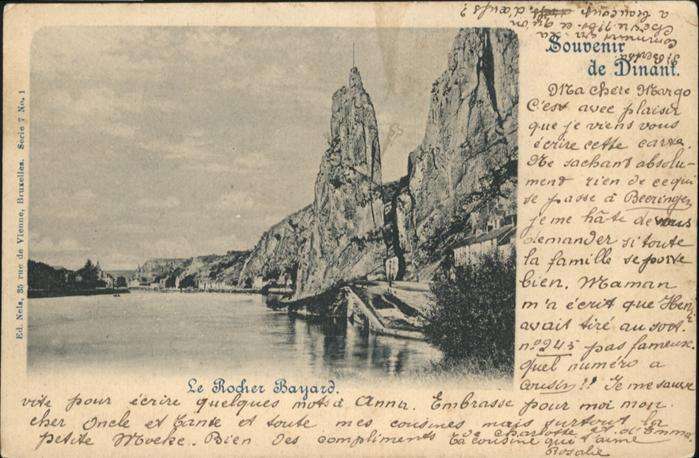 Souvenir
de Dinant.
Ma chère Margo
C'est avec plaisir
que je viens vous
écrire cette carte.
Ne sachant absolu-
ment rien de ce qui
se passe à Beeringen,
je me hâte de vous
demander si toute
la famille se porte
bien. Maman
m'a écrit que Henri
avait tiré au sort
n° 245 pas fameux.
quel numéro a
Cousin!! Je me sauve
vite pour écrire quelques mots à Anna. Embrasse pour moi mon
cher Oncle et Tante et toute mes cousines mais surtout la
petite Moeke. Bien des compliments de Charlotte et d'Emma
Ta cousine qui t'aime
Rosalie
Comment
a beaucoup d'œufs?
Le Rocher Bayard.
Ed. Nels, 35 rue de Vienne, Bruxelles. Serie 7 No. 1
63